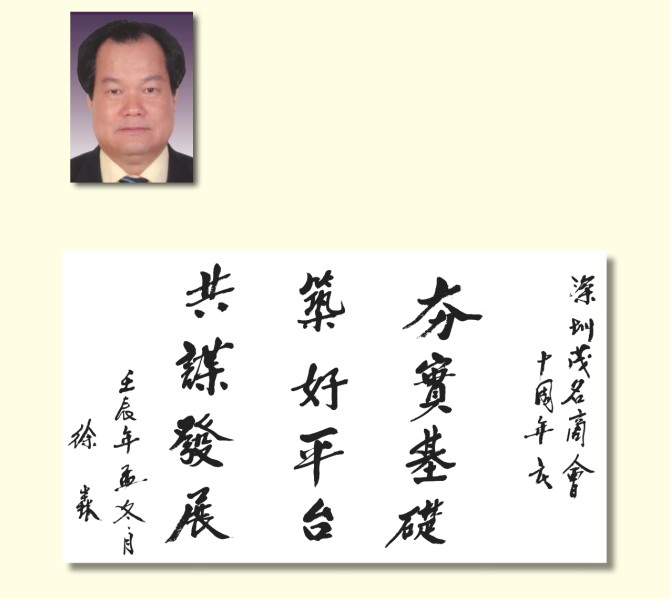 深圳茂名商會
十周年慶
夯實基礎
築好平台
共謀發展
壬辰年孟冬月
徐森